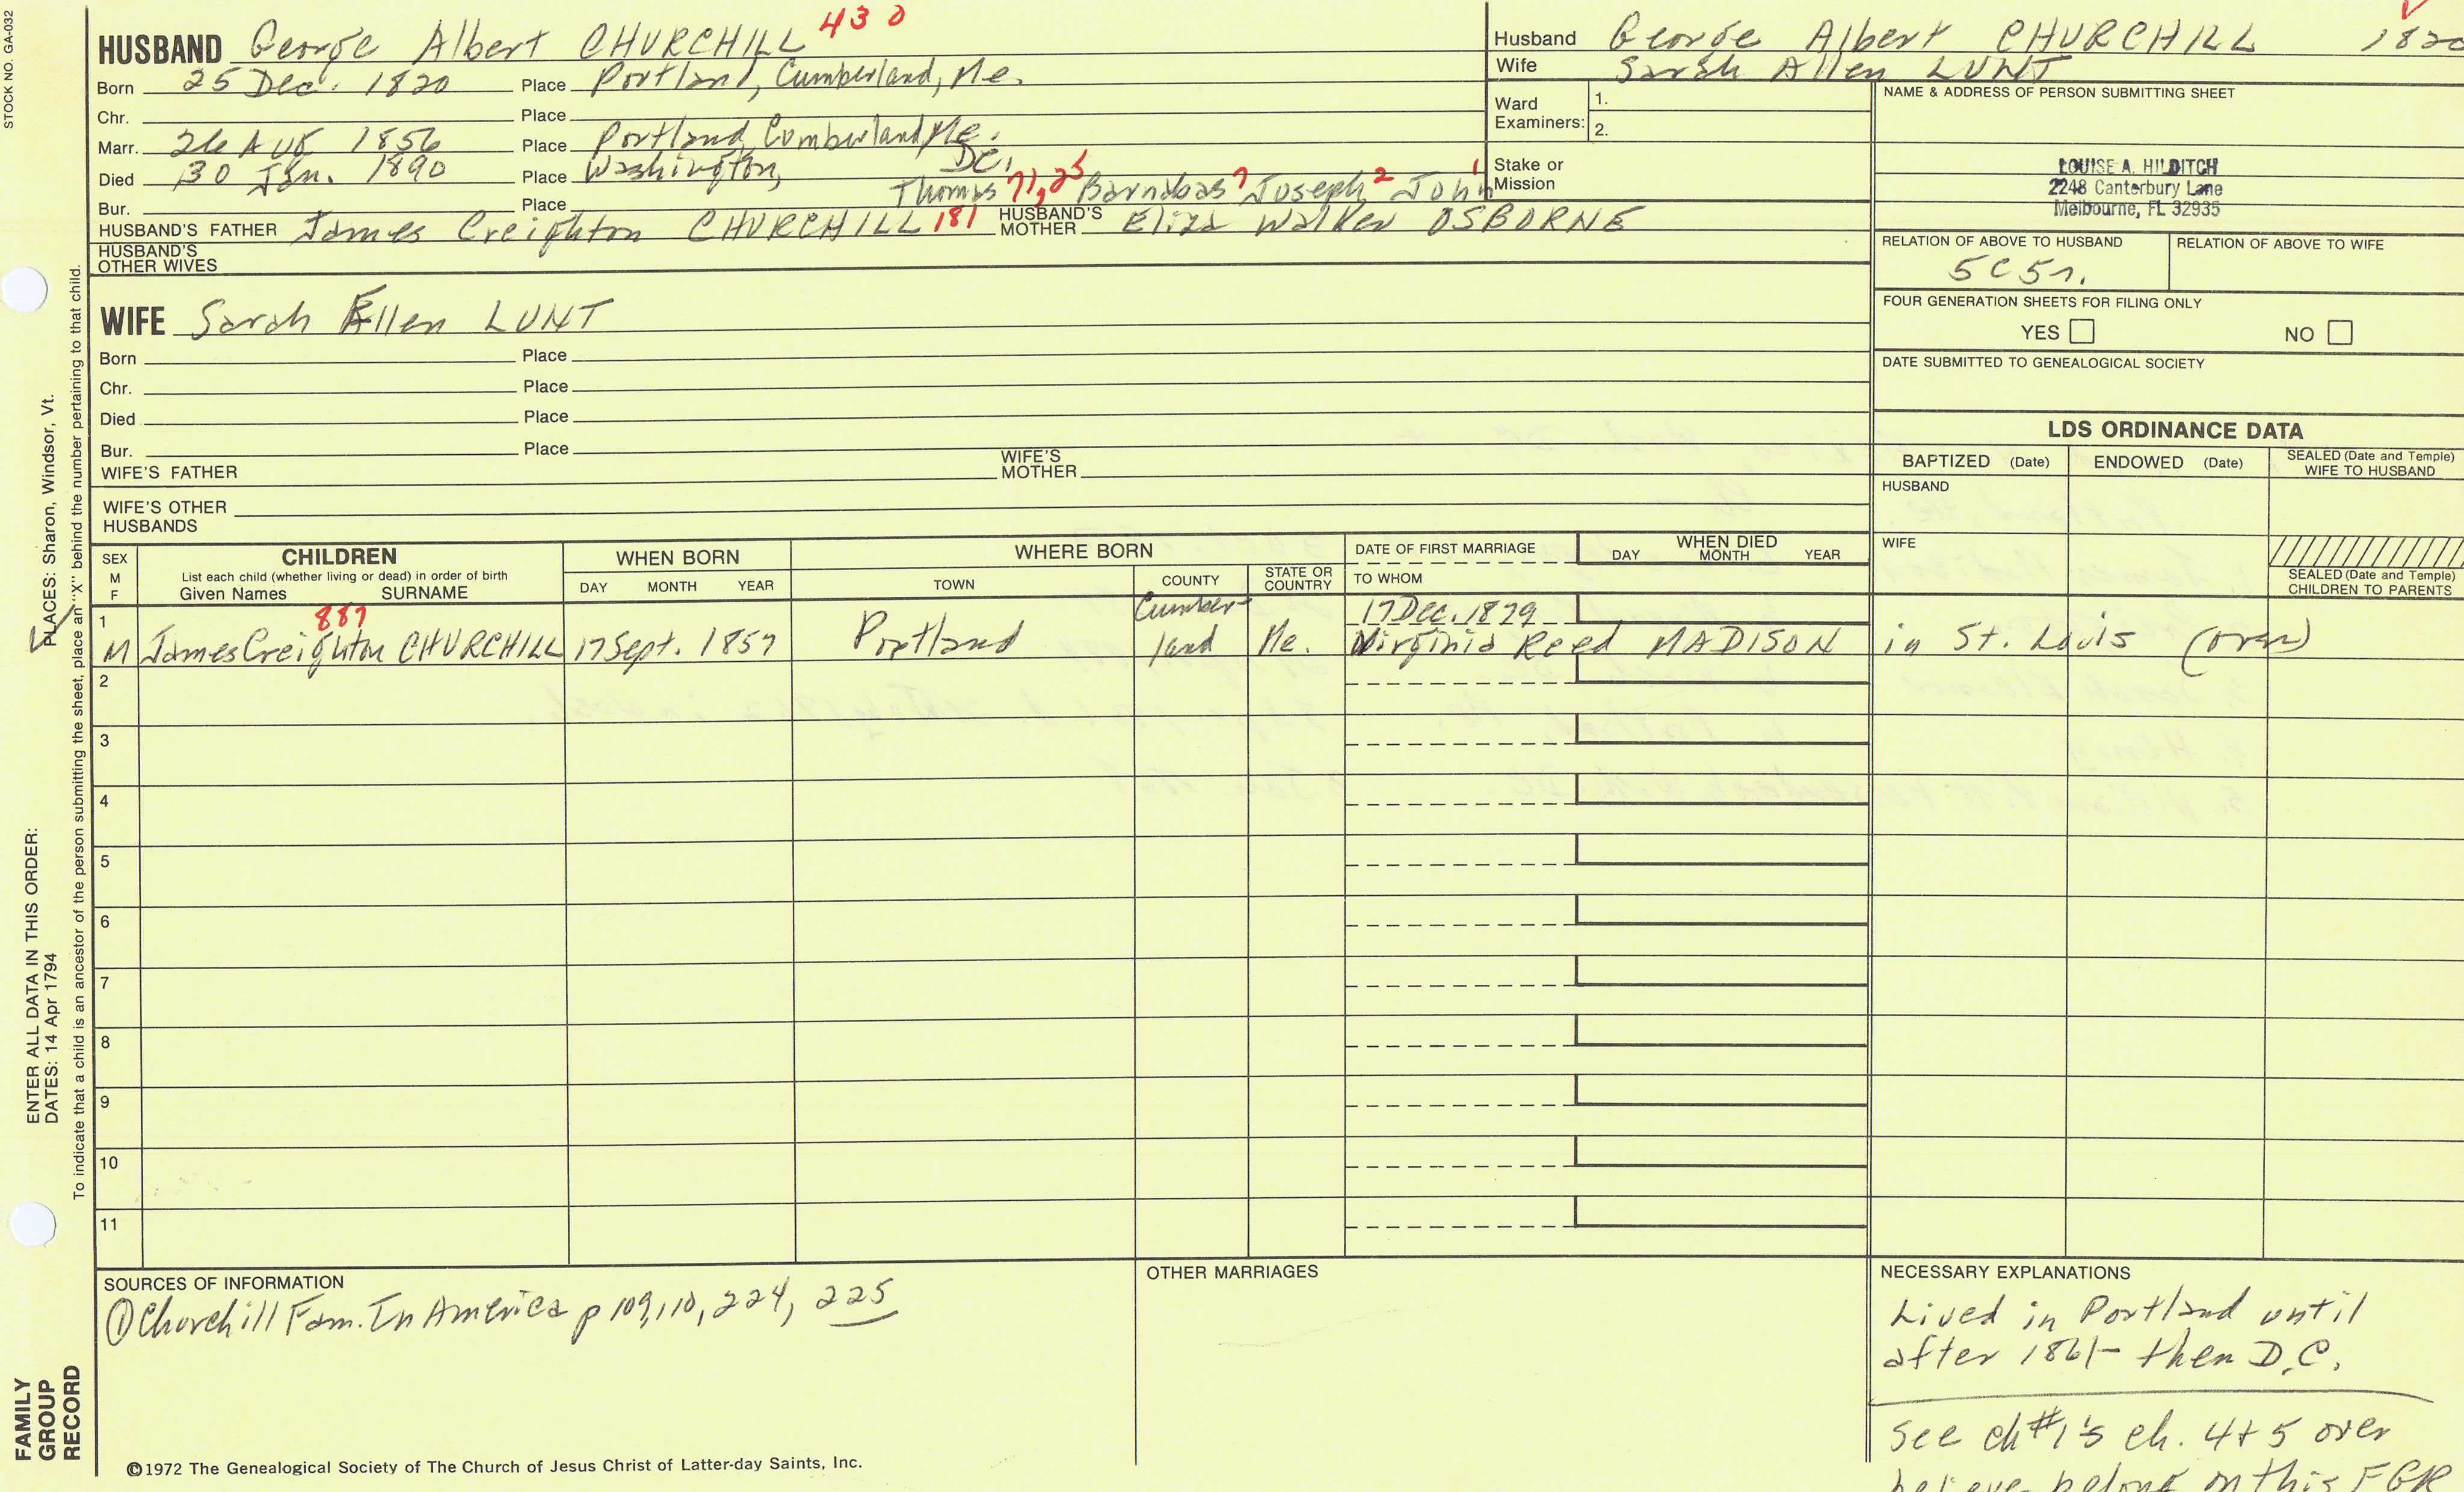 STOCK NO. GA-032
HUSBAND George Albert CHURCHILL 430
Born 25 Dec. 1820 Place Portland, Cumberland, Me.
Chr. Place
Marr. 26 Aug 1856 Place Portland, Cumberland, Me.
Died 30 Jan. 1890 Place Washington, DC.
Bur. Place Thomas 71,25 Barnabas 7 Joseph 2 John 1
HUSBAND'S FATHER James Creighton CHURCHILL 181 HUSBAND'S MOTHER Eliza Walker OSBORNE
HUSBAND'S OTHER WIVES
WIFE Sarah Ellen LUNT
Born Place
Chr. Place
Died Place
Bur. Place
WIFE'S FATHER WIFE'S MOTHER
WIFE'S OTHER HUSBANDS
Husband George Albert CHURCHILL 1820
Wife Sarah Allen LUNT
Ward Examiners: 1.
2.
Stake or Mission
NAME & ADDRESS OF PERSON SUBMITTING SHEET
LOUISE A. HILDITCH
2248 Canterbury Lane
Melbourne, FL 32935
RELATION OF ABOVE TO HUSBAND RELATION OF ABOVE TO WIFE
5C5r.
FOUR GENERATION SHEETS FOR FILING ONLY
YES NO
DATE SUBMITTED TO GENEALOGICAL SOCIETY
LDS ORDINANCE DATA
BAPTIZED (Date) ENDOWED (Date) SEALED (Date and Temple) WIFE TO HUSBAND
HUSBAND
WIFE
SEALED (Date and Temple) CHILDREN TO PARENTS
SEX M F
CHILDREN
List each child (whether living or dead) in order of birth
Given Names SURNAME
WHEN BORN
DAY MONTH YEAR
WHERE BORN
TOWN COUNTY STATE OR COUNTRY
DATE OF FIRST MARRIAGE
TO WHOM
WHEN DIED
DAY MONTH YEAR
1 887 Cumber- 17 Dec. 1879
M James Creighton CHURCHILL 17 Sept. 1857 Portland land Me. Virginia Reed MADISON in St. Louis (over)
2
3
4
5
6
7
8
9
10
11
SOURCES OF INFORMATION
① Churchill Fam. In America p 109, 110, 224, 225
OTHER MARRIAGES
NECESSARY EXPLANATIONS
Lived in Portland until
after 1861- then D.C.
See ch #1's ch. 4+5 over
believe belong on this FGR
©1972 The Genealogical Society of The Church of Jesus Christ of Latter-day Saints, Inc.
FAMILY
GROUP
RECORD
ENTER ALL DATA IN THIS ORDER:
DATES: 14 Apr 1794
PLACES: Sharon, Windsor, Vt.
To indicate that a child is an ancestor of the person submitting the sheet, place an "X" behind the number pertaining to that child.